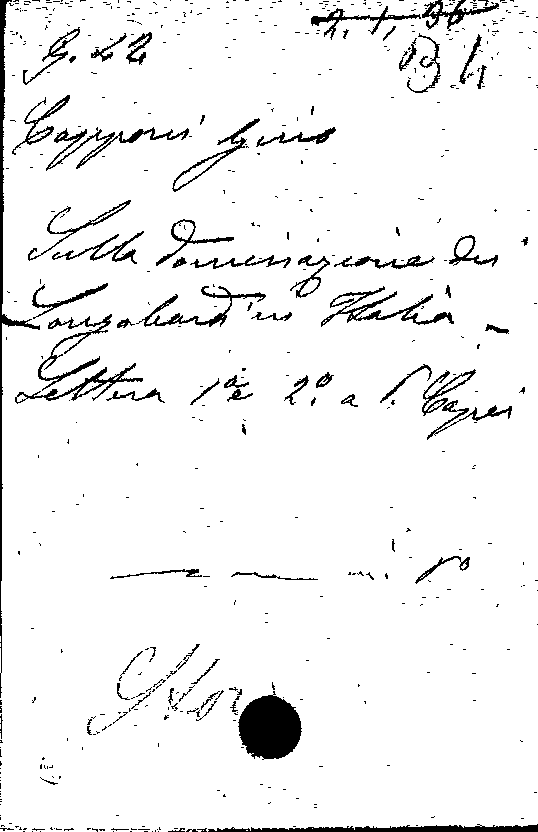 2. 1, 36
G. L2
B h
Capponi Gino
Sulla dominazione dei
Longobardi in Italia -
Lettera 1ª e 2ª a P. Capei
in 8º
Stor